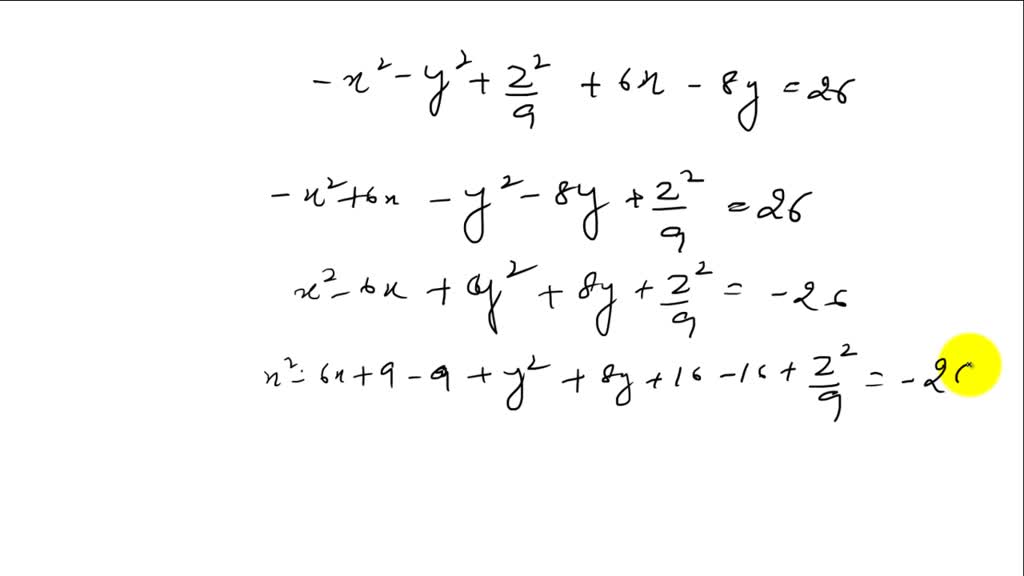 -x² - y² + z²/9 + 6x - 8y = 26
-x² + 6x - y² - 8y + z²/9 = 26
x² - 6x + y² + 8y + z²/9 = -26
x² - 6x + 9 - 9 + y² + 8y + 16 - 16 + z²/9 = -2